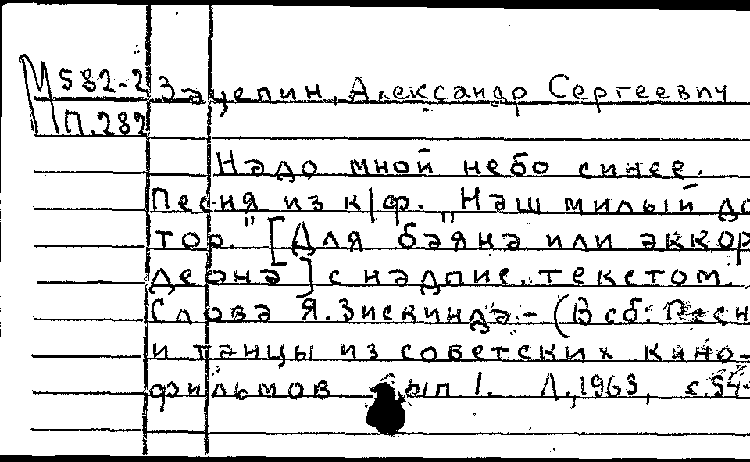 М 582-2 Зацепин, Александр Сергеевич
П.282
Надо мной небо синее.
Песня из к/ф. "Наш милый до
тор." [Для баяна или аккор
деона] с надпис. текстом.
Слова Я. Зискинда.- (В сб: Песн
и танцы из советских кино-
фильмов вып 1. Л., 1963, с.54-